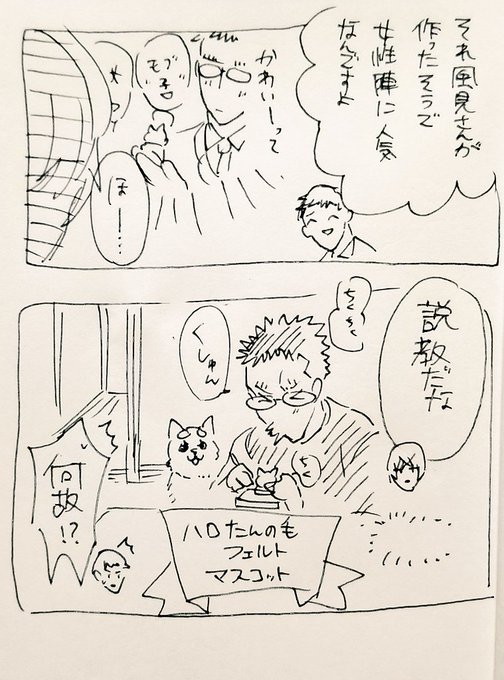 それ風見さんが
作ったそうで
女性陣に人気
なんですよ
かわいーって
モブ
子
ほー……
説教だな
ちくちく
くしゅん
ちく
何故!?
ハロたんの毛
フェルト
マスコット